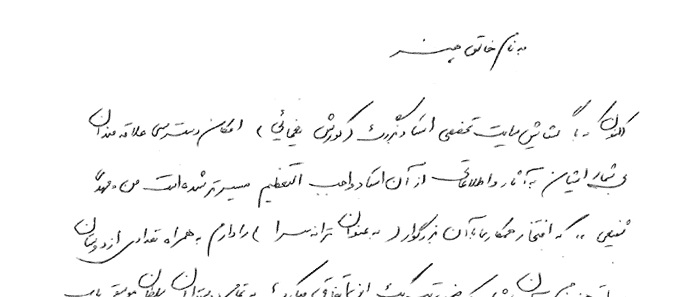 به نام خالق هنر
اکنون که با گشایش سایت تخصصی استاد بزرگ (کورش یغمائی) امکان دسترسی علاقه مندان
بی شمار ایشان به آثار و اطلاعاتی از آن استاد واجب التعظیم میسر تر شده است من «مهدی
شفیعی» که افتخار همکاری با آن بزرگوار (به عنوان ترانه سرا) را دارم به همراه تعدادی از دوستان